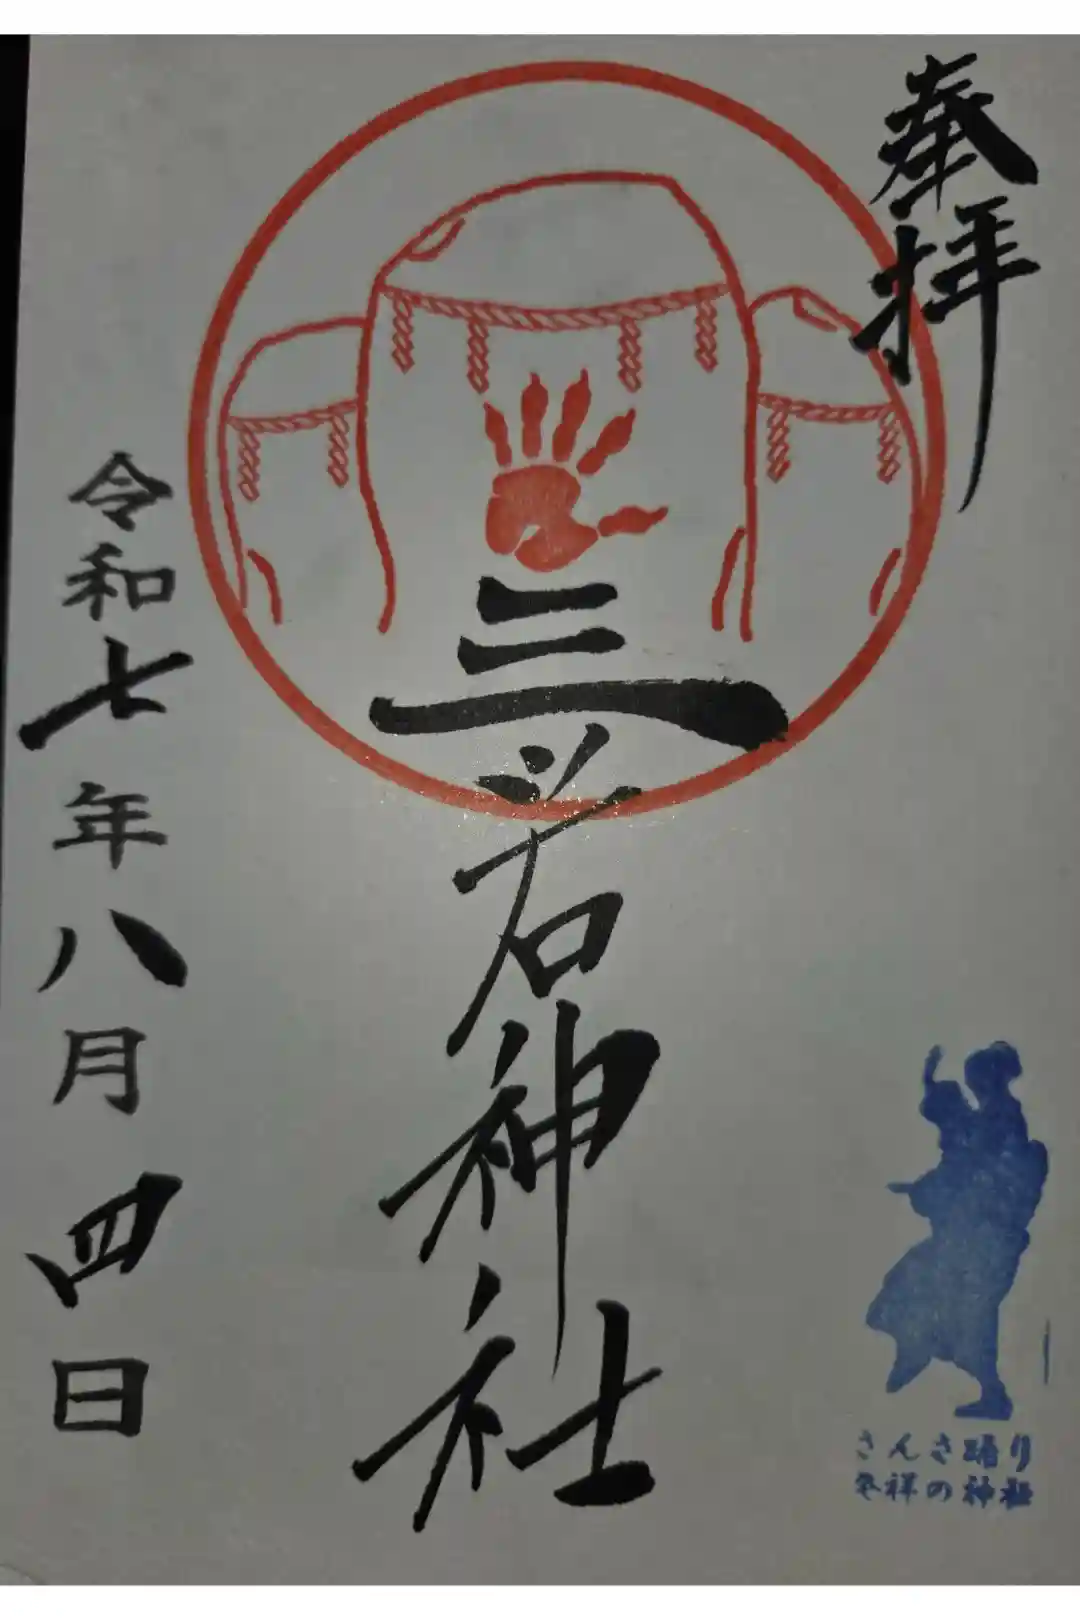 奉拝
三ツ石神社
令和七年八月四日
さんさ踊り
発祥の神社